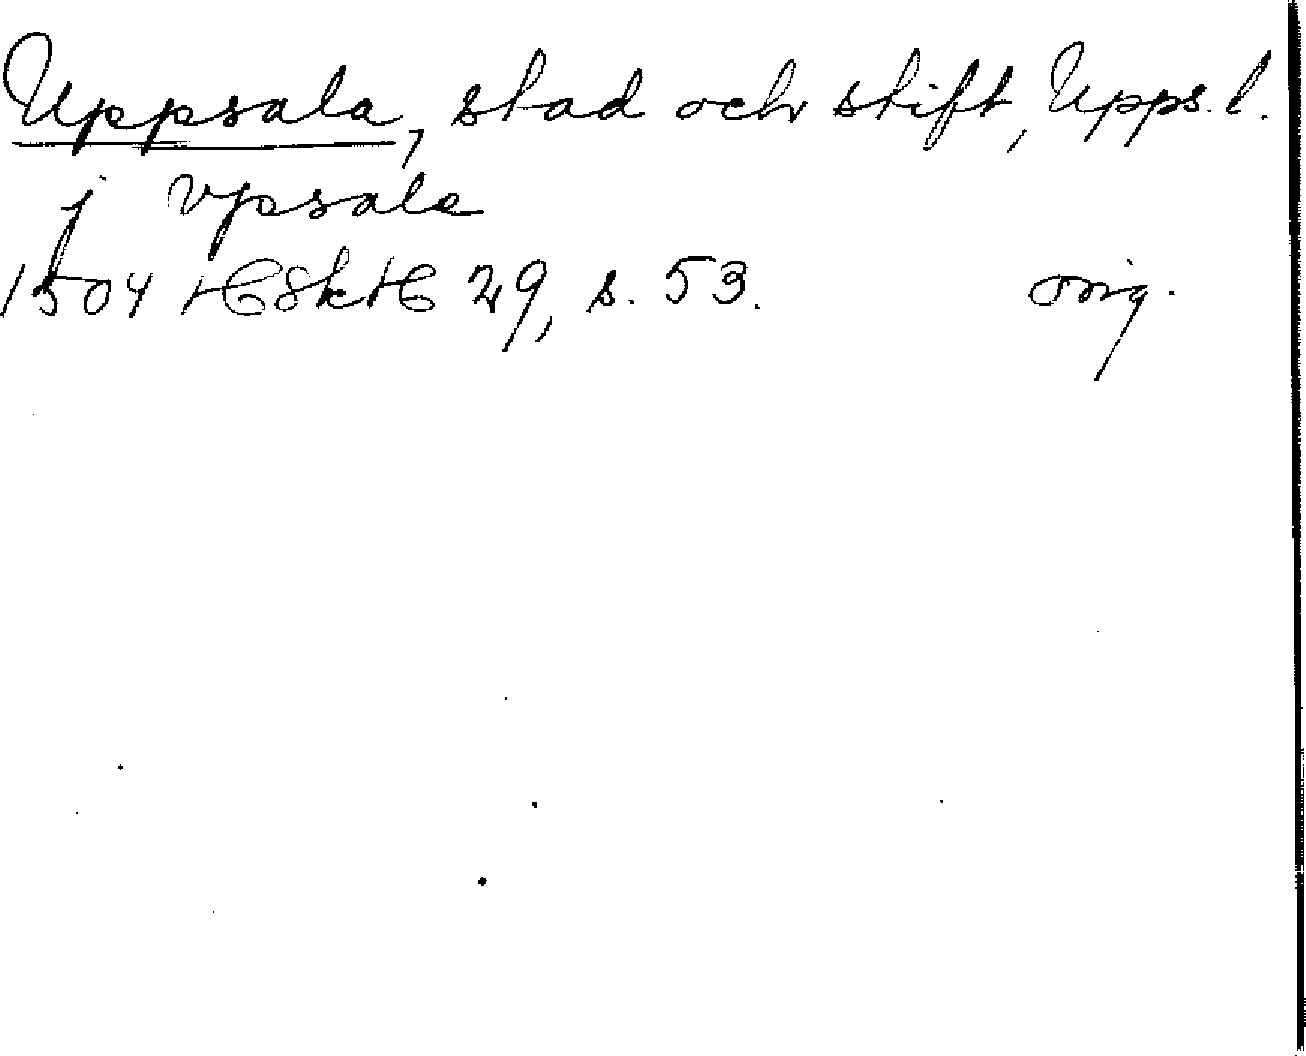 Uppsala, stad och stift, Upps. l.
j Vpsala
1504 HSkH 29, s. 53. orig.